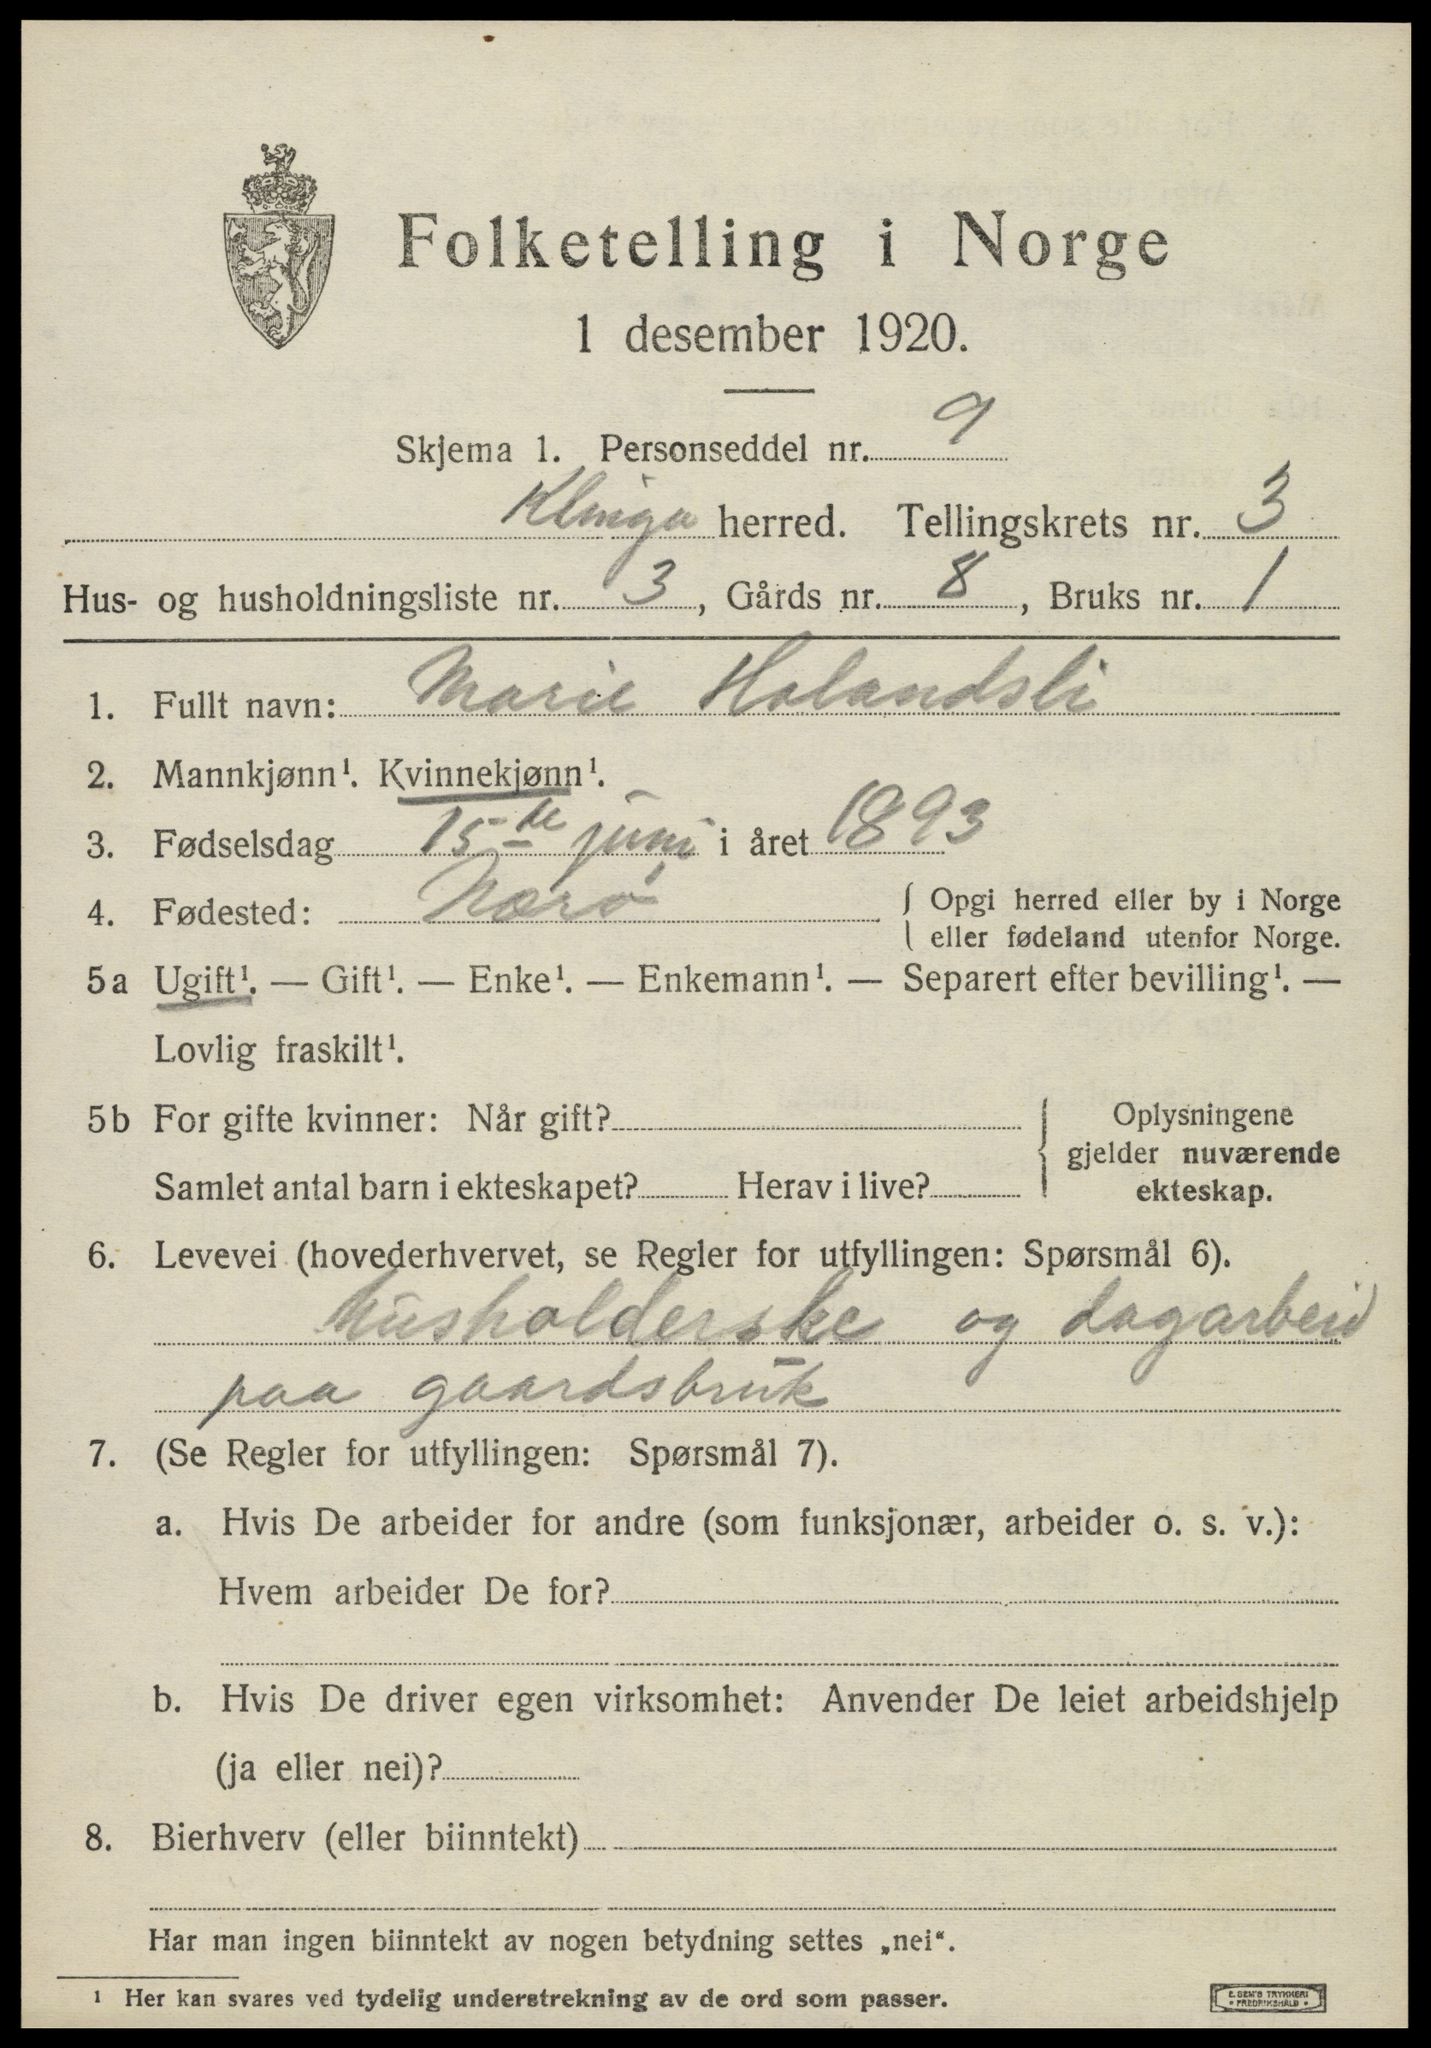 Folketelling i Norge
1 desember 1920.
Skjema 1. Personseddel nr. 9
Klinga herred. Tellingskrets nr. 3
Hus- og husholdningsliste nr. 3, Gårds nr. 8, Bruks nr. 1
1. Fullt navn: Marie Holandsli
2. Mannkjønn¹. Kvinnekjønn¹.
3. Fødselsdag 15de juni i året 1893
4. Fødested: Nærø { Opgi herred eller by i Norge
eller fødeland utenfor Norge.
5a Ugift¹. — Gift¹. — Enke¹. — Enkemann¹. — Separert efter bevilling¹. —
Lovlig fraskilt¹.
5b For gifte kvinner: Når gift? { Oplysningene
gjelder nuværende
Samlet antal barn i ekteskapet? Herav i live? ekteskap.
6. Levevei (hovederhvervet, se Regler for utfyllingen: Spørsmål 6).
husholderske og dagarbeid
paa gaardsbruk
7. (Se Regler for utfyllingen: Spørsmål 7).
a. Hvis De arbeider for andre (som funksjonær, arbeider o. s. v.):
Hvem arbeider De for?
b. Hvis De driver egen virksomhet: Anvender De leiet arbeidshjelp
(ja eller nei)?
8. Bierhverv (eller biinntekt)
Har man ingen biinntekt av nogen betydning settes „nei“.
¹ Her kan svares ved tydelig understrekning av de ord som passer.
E. SEM'S TRYKKERI
• FREDRIKSHALD •